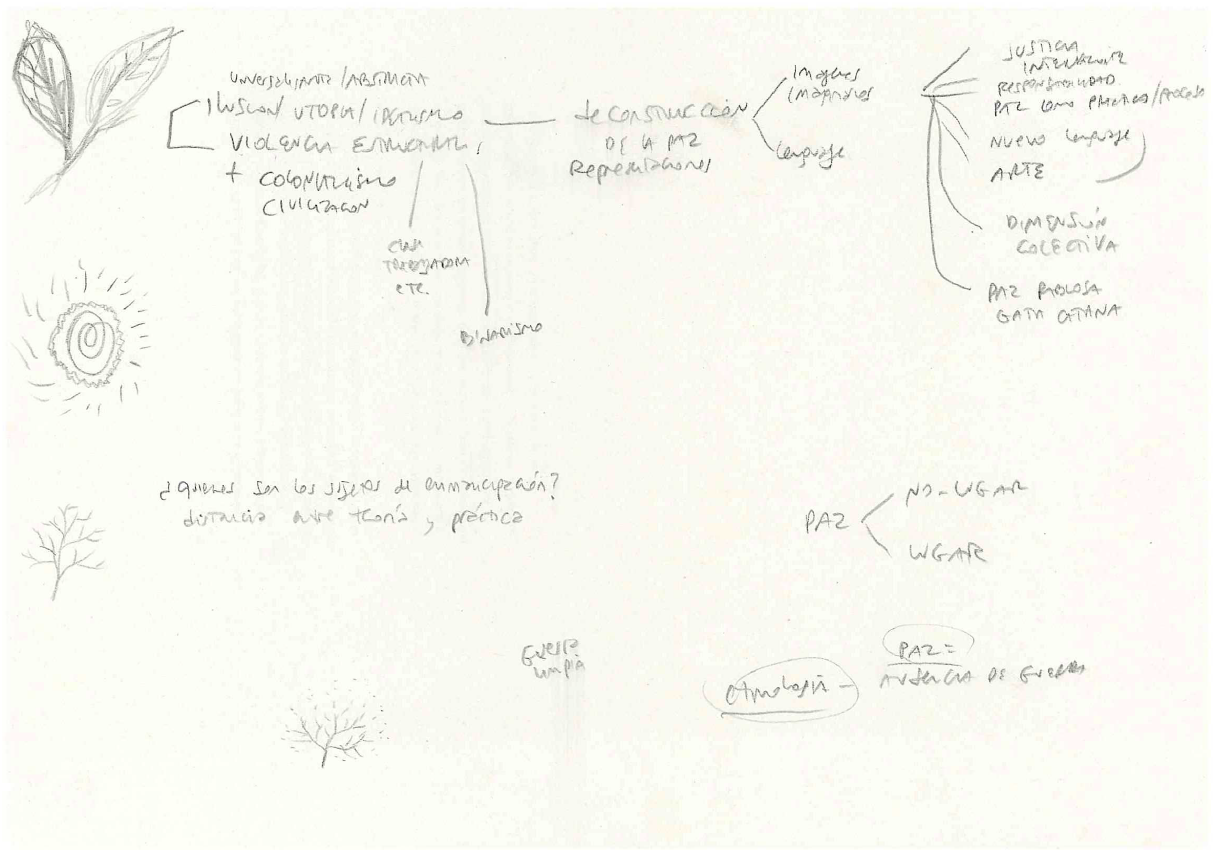 UNIVERSALIZANTE / ABSTRACTA
ILUSION / UTOPIA / IDEALISMO
VIOLENCIA ESTRUCTURAL
+ COLONIALISMO
CIVILIZACON
CLASE
TRABAJADORA
etc.
BINARISMO
deconstrucción
DE LA PAZ
Representaciones
Imágenes
Imaginarios
Lenguaje
JUSTICIA
RESPONSABILIDAD
PAZ como PRÁCTICA / PROCESO
NUEVO Lenguaje
ARTE
DIMENSIÓN
COLECTIVA
PAZ
GATA GITANA
¿Quienes son los sujetos de enmancipación?
distancia entre teoría y práctica
PAZ
NO-LUGAR
LUGAR
Guerra
limpia
etimología –
PAZ =
AUSENCIA DE GUERRA